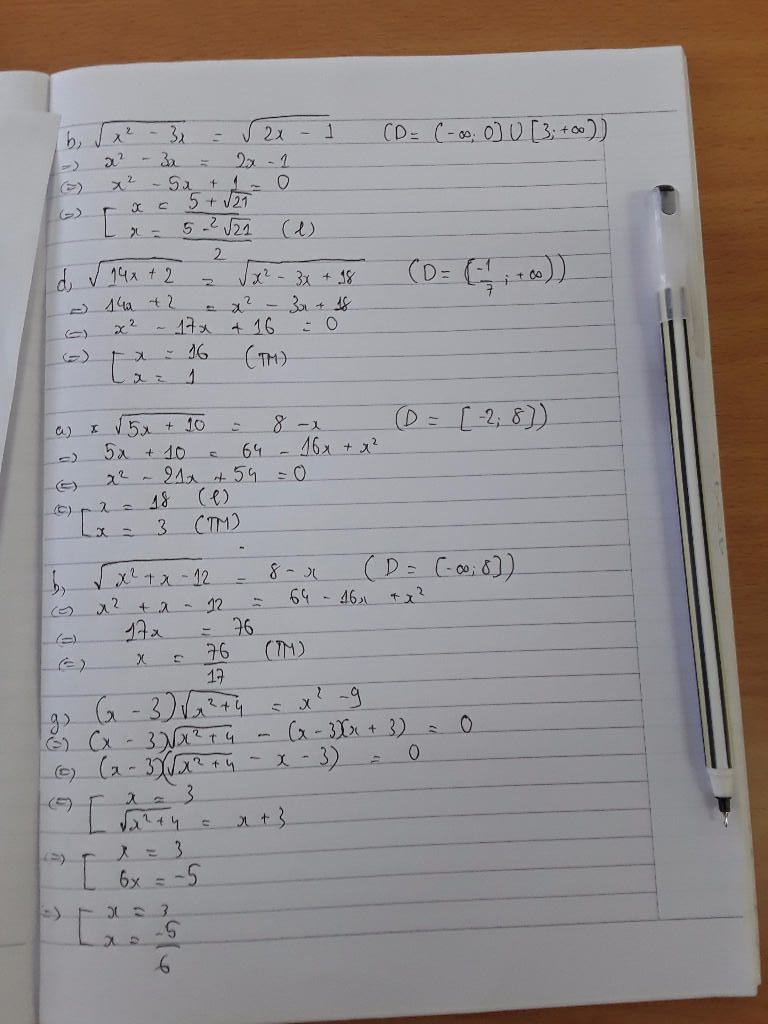 b, √(x² - 3x) = √(2x - 1) (D = (-∞; 0] ∪ [3; +∞))
=> x² - 3x = 2x - 1
<=> x² - 5x + 1 = 0
<=> [ x = (5 + √21)/2
x = (5 - √21)/2 (l)
d, √(14x + 2) = √(x² - 3x + 18) (D = [-1/7; +∞))
=> 14x + 2 = x² - 3x + 18
<=> x² - 17x + 16 = 0
<=> [ x = 16 (TM)
x = 1
a) x √(5x + 10) = 8 - x (D = [-2; 8])
=> 5x + 10 = 64 - 16x + x²
<=> x² - 21x + 54 = 0
<=> [ x = 18 (l)
x = 3 (TM)
b, √(x² + x - 12) = 8 - x (D = (-∞; 8])
<=> x² + x - 12 = 64 - 16x + x²
<=> 17x = 76
<=> x = 76/17 (TM)
g) (x - 3)√(x² + 4) = x² - 9
<=> (x - 3)√(x² + 4) - (x - 3)(x + 3) = 0
<=> (x - 3)(√(x² + 4) - x - 3) = 0
<=> [ x = 3
√(x² + 4) = x + 3
=> [ x = 3
6x = -5
=> [ x = 3
x = -5/6